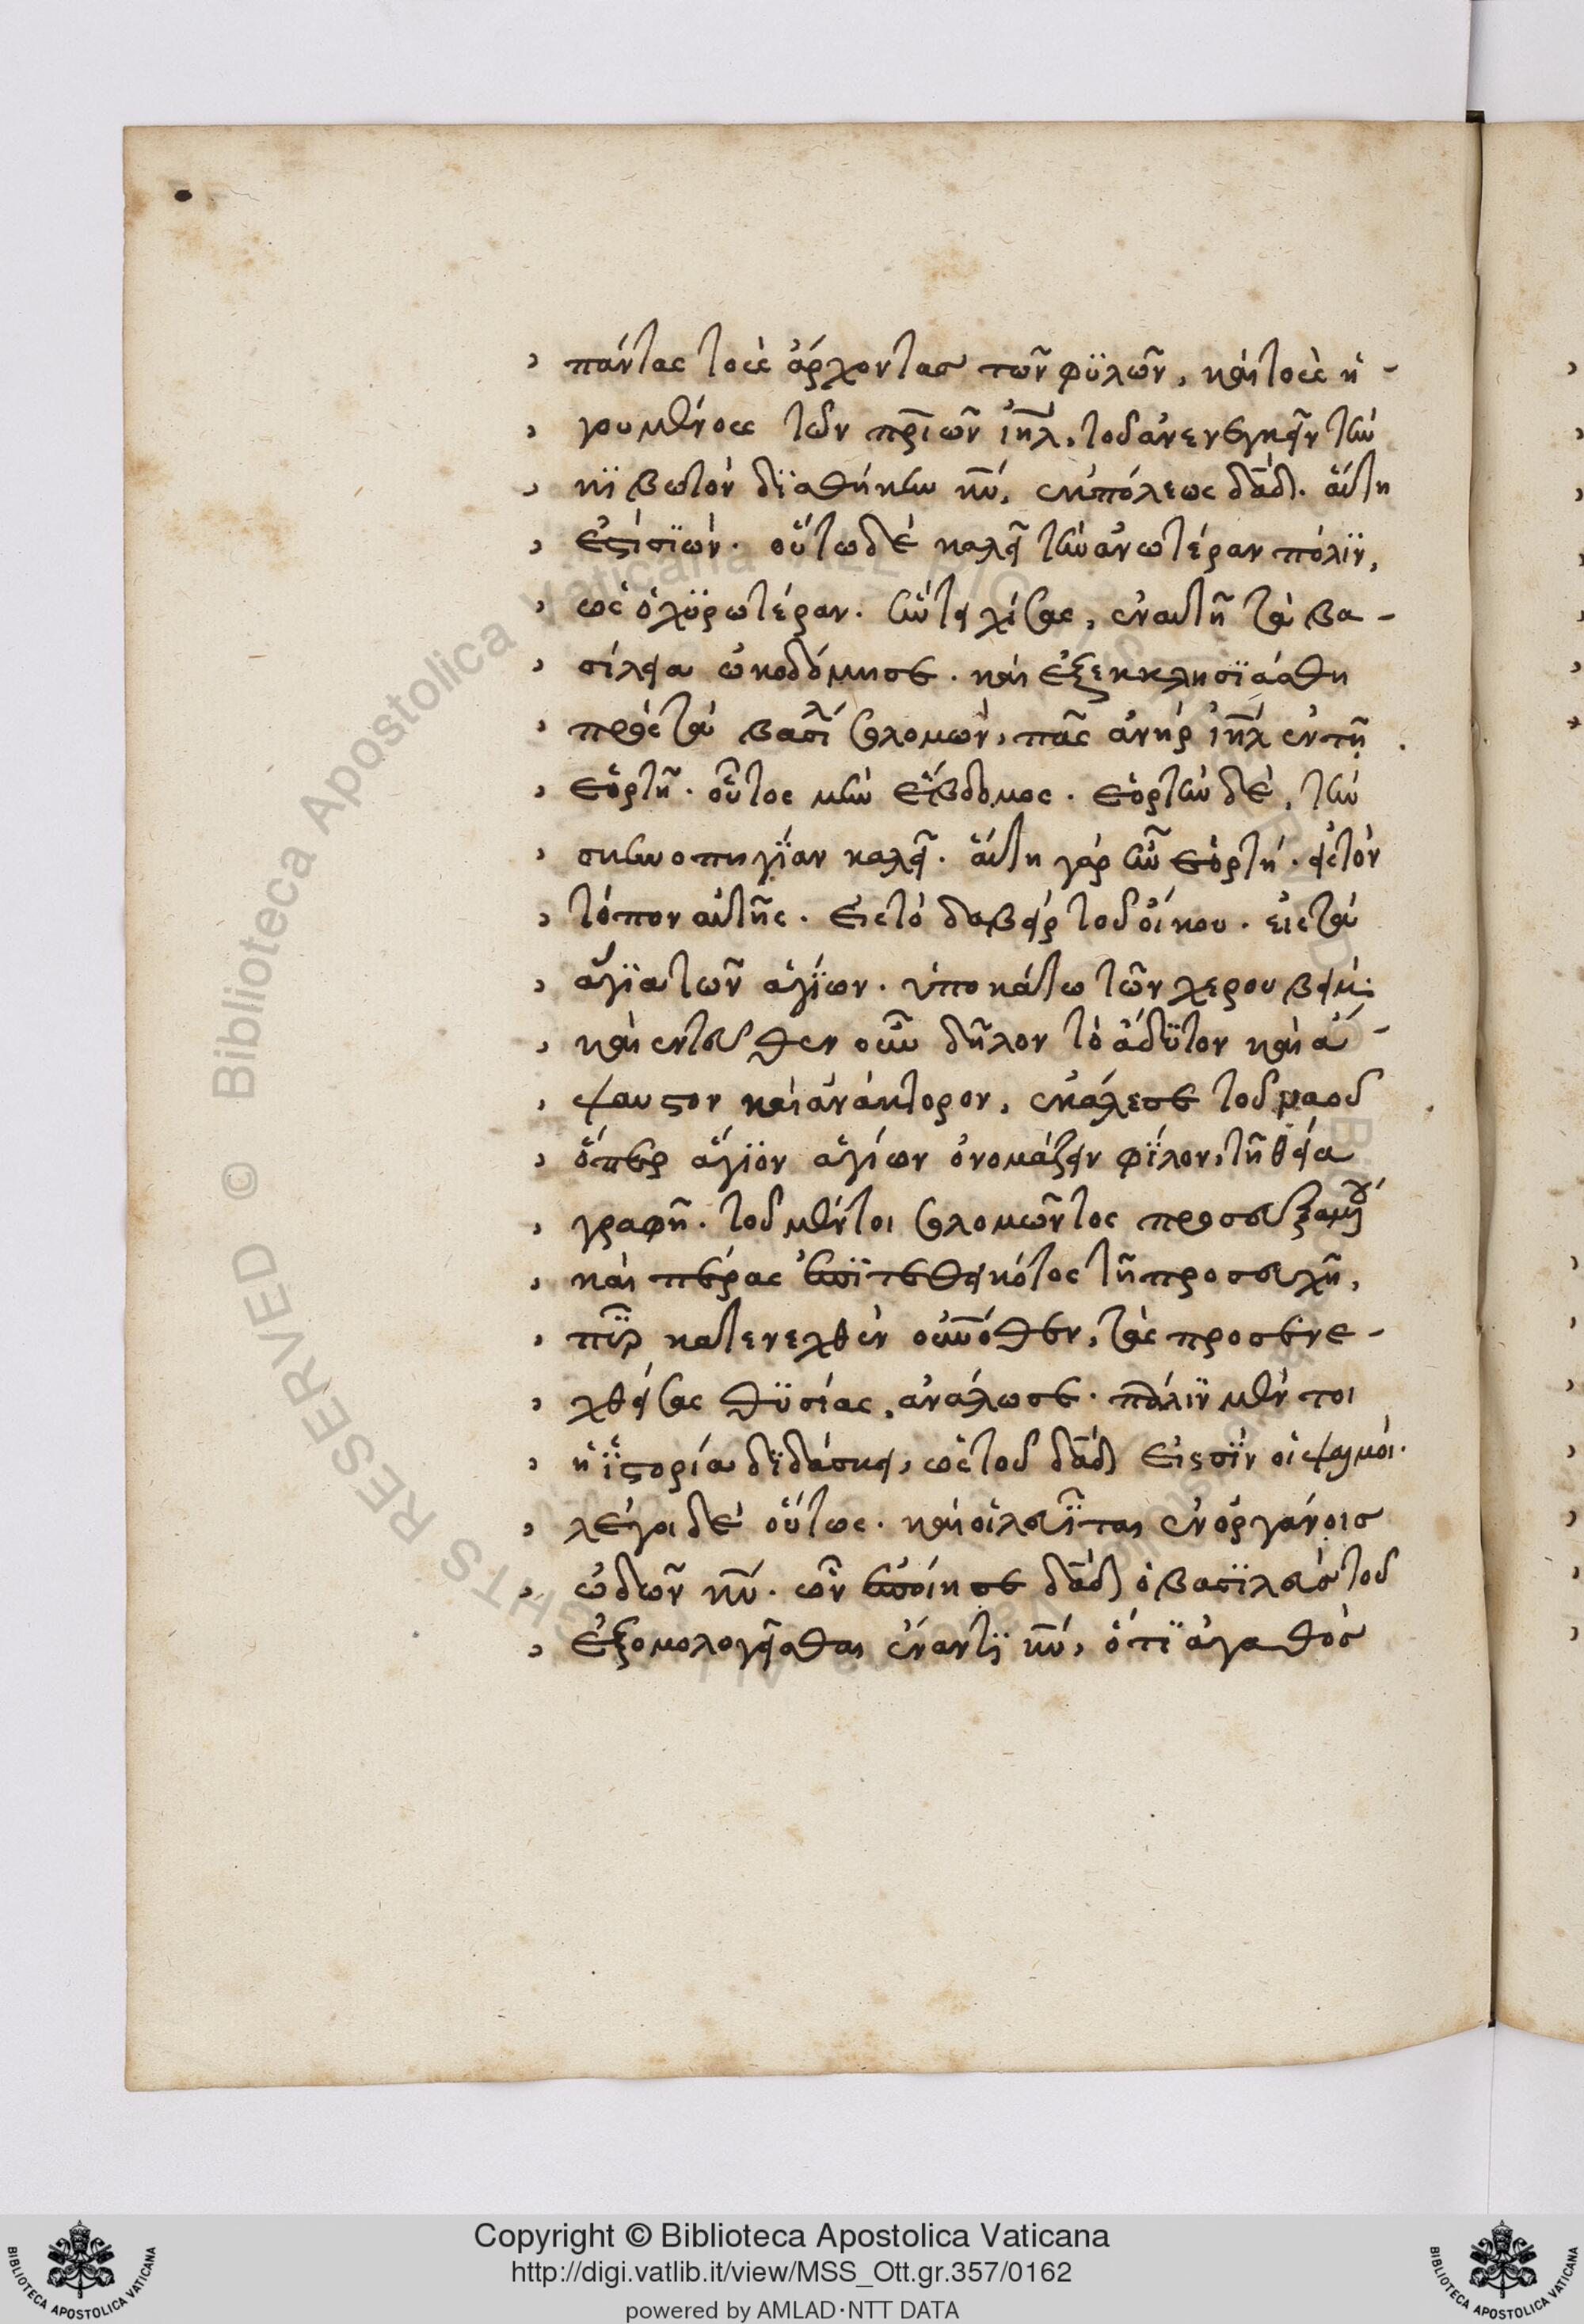 πάντας τοὺς ἄρχοντας τῶν φϋλῶν, καὶ τοὺς ἡ-
γουμένους τῶν πρ̅ιῶν ἰη̅λ, τοῦ ἀνενεγκεῖν τὴν
κϊβωτὸν δϊαθήκην κυ̅, ἐκ πόλεως δα̅δ. αὕτη
ἐστὶ σϊών. οὕτω δὲ καλεῖ τὴν ἀνωτέραν πόλϊν,
ὡς ὀχϋρωτέραν. ἣν τειχίσας, ἐν αὐτῇ τὰ βα-
σίλεια ὠκοδόμησε. καὶ ἐξεκκλησϊάσθη
πρὸς τὸν βασιλ σολομῶν, πᾶς ἀνὴρ ἰη̅λ ἐν τῇ
ἑορτῇ. οὗτος μὴν ἕβδομος. ἑορτὴν δὲ, τὴν
σκηνοπηγΐαν καλεῖ. αὕτη γὰρ ἦν ἑορτή. εἰς τὸν
τόπον αὐτῆς. εἰς τὸ δαβεὶρ τοῦ οἴκου. εἰς τὰ
ἅγϊα τῶν ἁγΐων. ὑποκάτω τῶν χερουβείμ:
καὶ ἐντεῦθεν οὖν δῆλον τὸ ἄδϋτον καὶ ἄ-
ψαυστον καὶ ἀνάκτορον, ἐκάλεσε τοῦ ναοῦ
ὅπερ ἅγϊον ἁγίων ὀνομάζειν φΐλον, τῇ θεία
γραφῇ. τοῦ μέντοι σολομῶντος προσευξαμέ
καὶ πέρας ἐπϊτεθεικότος τῇ προσευχῇ,
πῦρ κατενεχθὲν οὐνόθεν, τὰς προσενε-
χθείσας θϋσίας, ἀνάλωσε. πάλιν μέν τοι
ἡ ἱστορία δϊδάσκει, ὡς τοῦ δα̅δ εἰσϊν οἱ ψαλμοί.
λέγει δὲ οὕτως. καὶ οἱ λευΐται ἐν ὀργάνοις
ὠδῶν κυ̅. ὧν ἐποίησε δα̅δ ὁ βασϊλεὺς τοῦ
ἐξομολογεῖσθαι ἔναντϊ κυ̅, ὅτϊ ἀγαθὸς
Copyright © Biblioteca Apostolica Vaticana
http://digi.vatlib.it/view/MSS_Ott.gr.357/0162
powered by AMLAD·NTT DATA